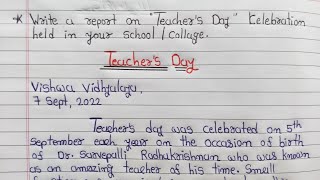 * Write a report on "Teacher's Day" Celebration
held in your school / Collage.
Teacher's Day
Vishwa Vidhyalaya,
7 Sept, 2022
Teacher's day was celebrated on 5th
september each year on the occasion of birth
of Dr. Sarvepalli Radhakrishnan who was known
as an amazing teacher of his time. Small